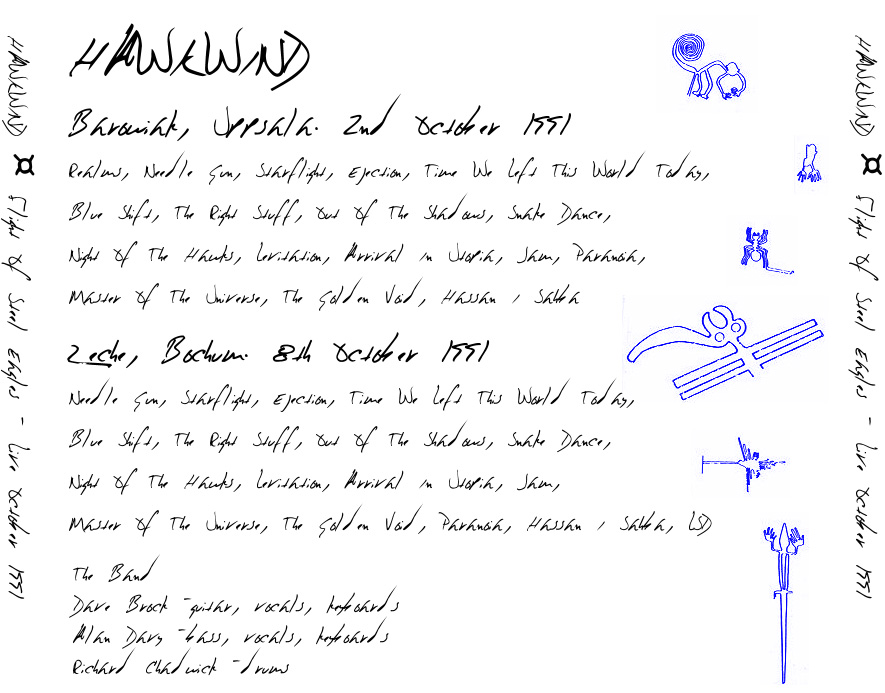 HAWKWIND ¤ Flight Of Steel Eagles - Live October 1991
HAWKWIND
Barowiak, Uppsala. 2nd October 1991
Realms, Needle Gun, Starflight, Ejection, Time We Left This World Today,
Blue Shift, The Right Stuff, Out Of The Shadows, Snake Dance,
Night Of The Hawks, Levitation, Arrival in Utopia, Jam, Paranoia,
Master Of The Universe, The Golden Void, Hassan i Sahba
Zeche, Bochum. 8th October 1991
Needle Gun, Starflight, Ejection, Time We Left This World Today,
Blue Shift, The Right Stuff, Out Of The Shadows, Snake Dance,
Night Of The Hawks, Levitation, Arrival in Utopia, Jam,
Master Of The Universe, The Golden Void, Paranoia, Hassan i Sahba, LSD
The Band
Dave Brock - guitar, vocals, keyboards
Alan Davy - bass, vocals, keyboards
Richard Chadwick - drums
HAWKWIND ¤ Flight Of Steel Eagles - Live October 1991